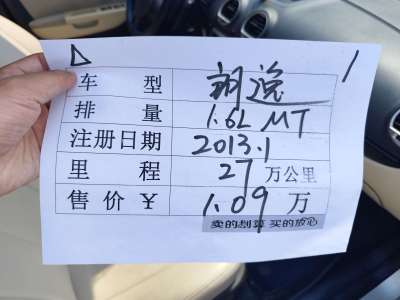 车型 朗逸
排量 1.6L MT
注册日期 2013.1
里程 27万公里
售价¥ 1.09万
卖的划算 买的放心